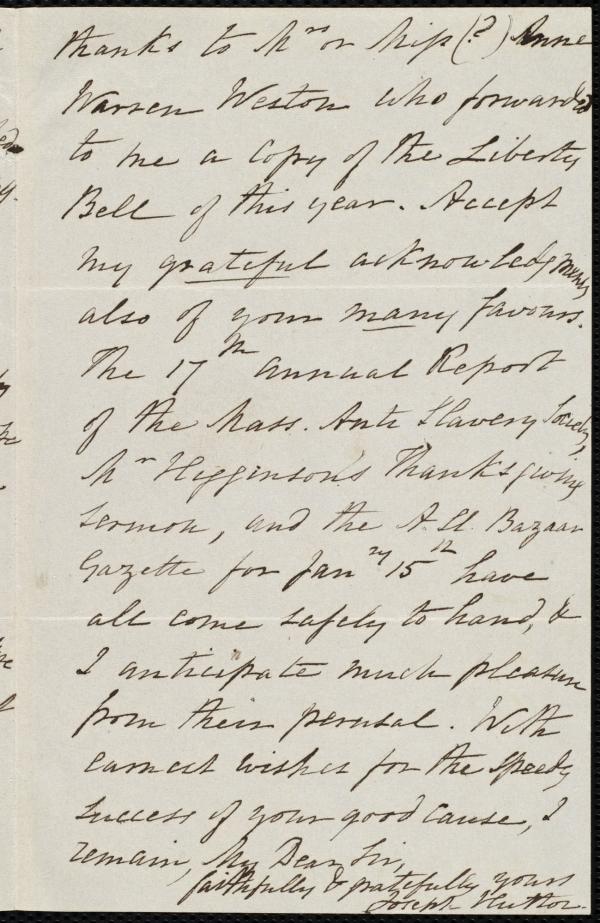 thanks to Mrs or Miss (?) Anne
Warren Weston who forwarded
to me a copy of the Liberty
Bell of this year. Accept
my grateful acknowledgments
also of your many favours.
The 17th Annual Report
of the Mass. Anti Slavery Society,
Mr Higginson's Thanksgiving
Sermon, and the A. Sl. Bazaar
Gazette for Jany 15th have
all come safely to hand, &
I anticipate much pleasure
from their perusal. With
earnest wishes for the speedy
success of your good cause, I
remain, My Dear Sir,
faithfully & gratefully yours
Joseph Hutton.